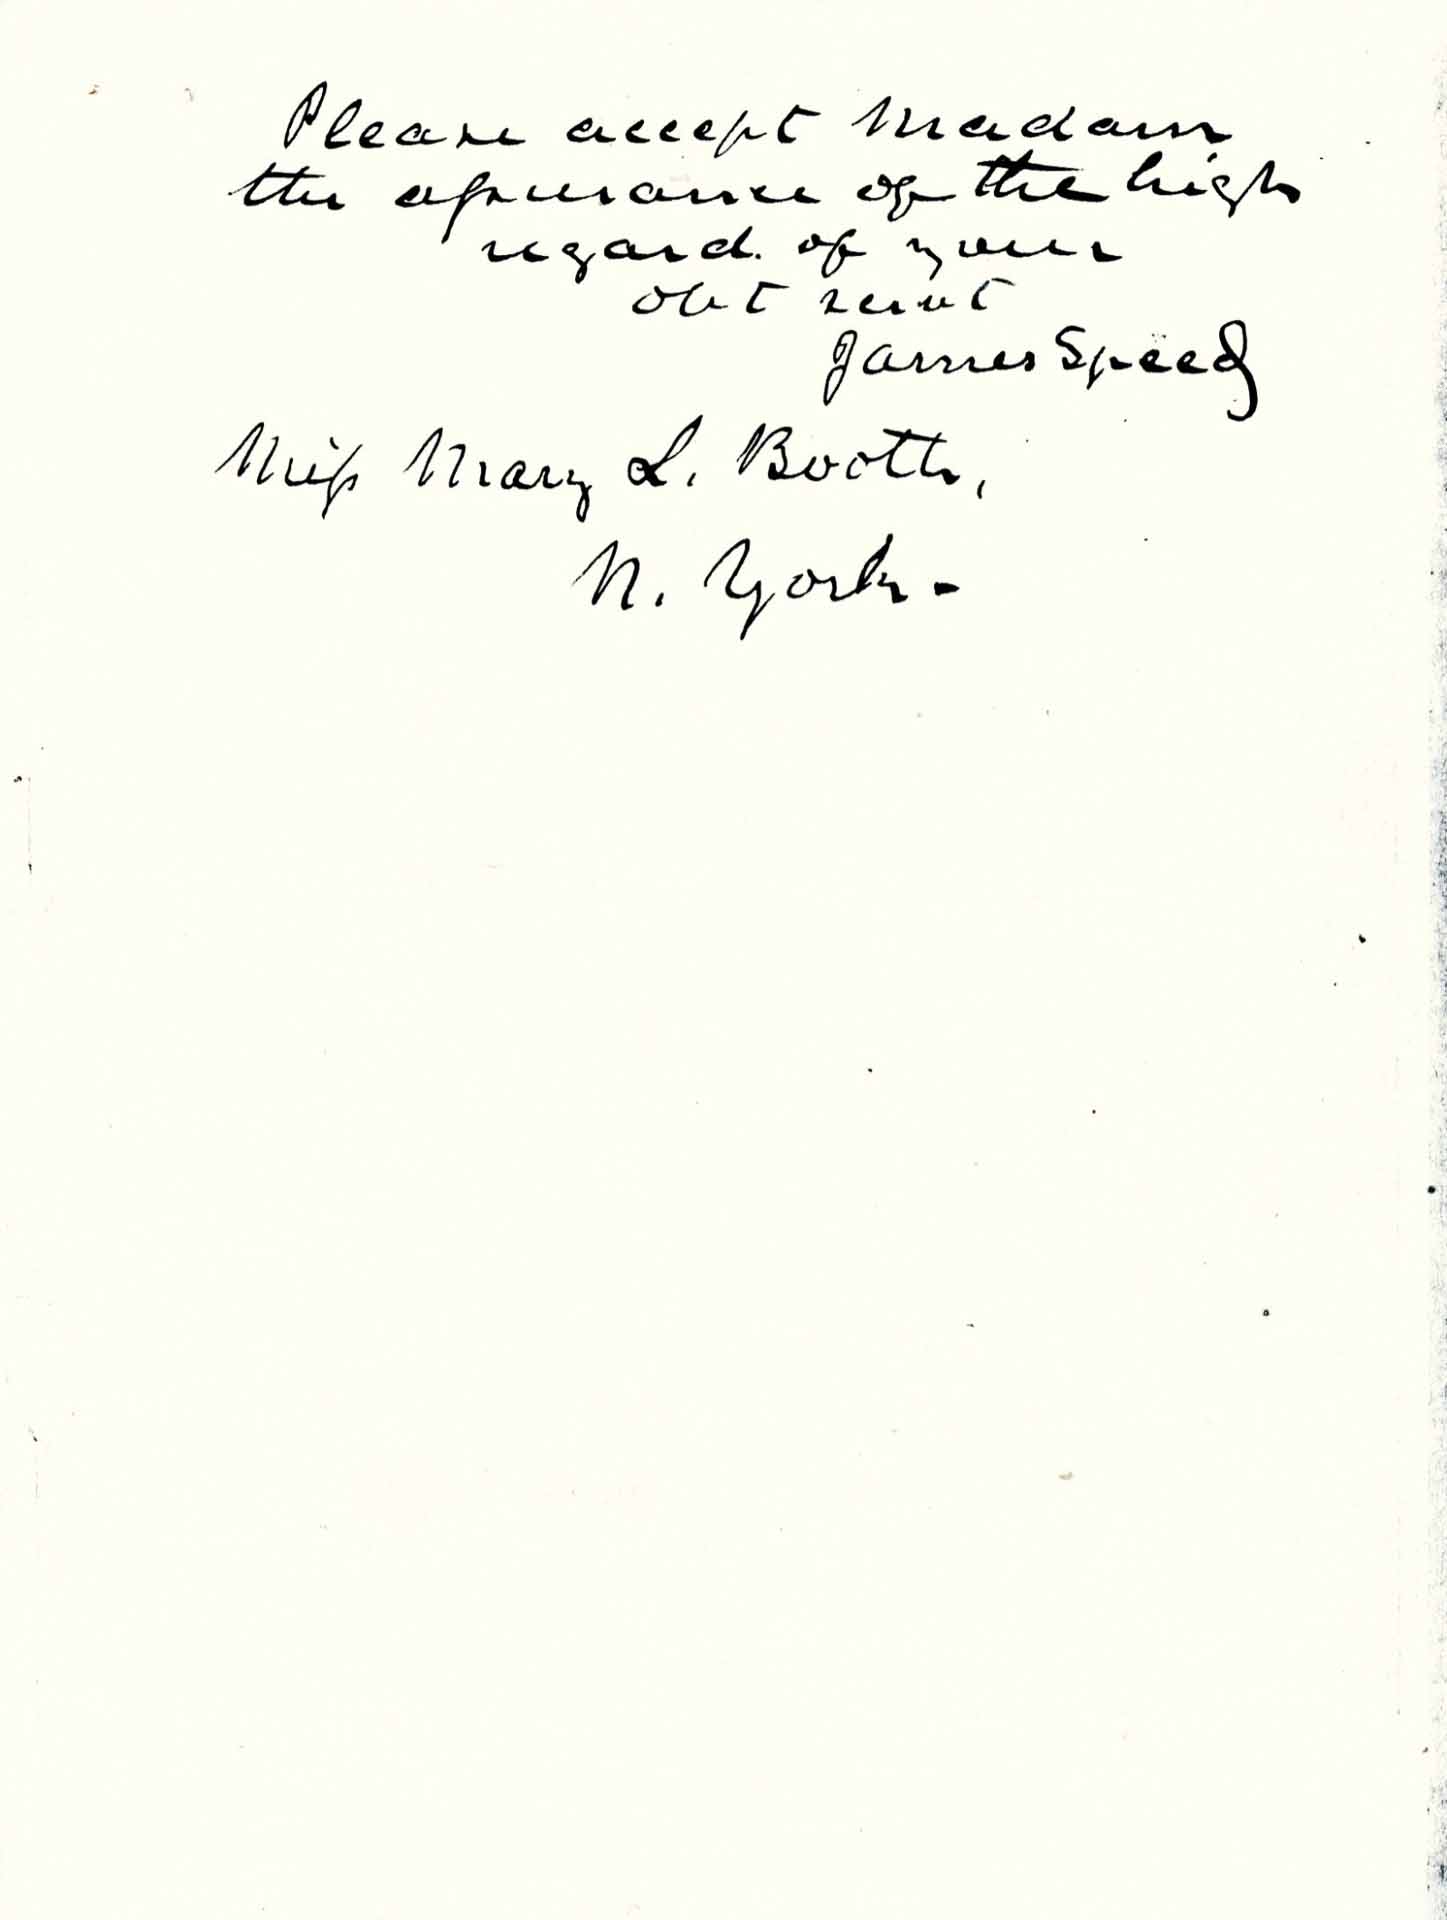 Please accept Madam
the assurance of the high
regard. of your
obt servt
James Speed
Miss Mary L. Booth,
N. York-